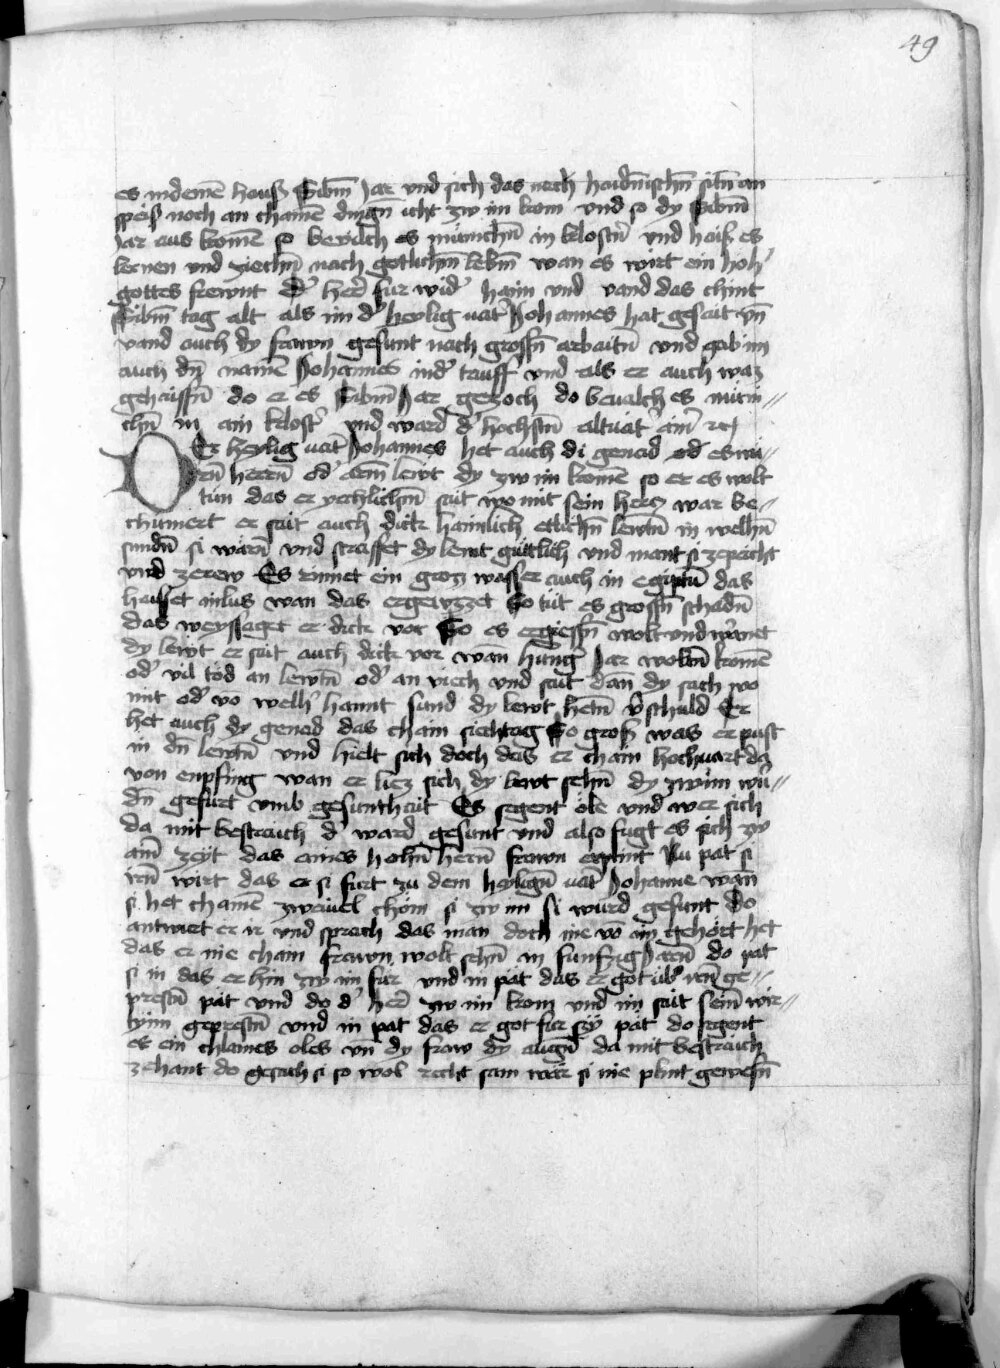 49
es in deinē hauß Sibm̄ Jar und sich das nach haidnischn̄ sitn̄ an
speiß noch an chainē dingn̄ icht zw im kom und so dy Sibm̄
Jar aus komē so bevilch es münichn̄ in klostn̄ und haiß es
lernen und ziechn̄ nach gotlichm̄ lebm̄ wan es wirt ein hoh'
gottes frewnt d' her fur wid' haim und vand das chint
Sibm̄ tag alt als im d' heylig vat' Johannes hat gesait vn̄
vand auch dy frawn gesunt nach grossn̄ arbaitn̄ und gab im
auch dn̄ namē Johannes in d' tauff und als er auch waz
gehaissn̄ do er es Sibm̄ Jar gezoch do bevalch es mün//
chn̄ in ain klost' und ward d' hochstn̄ altvät' ain' rc
DEr heylig vat' Johannes het auch di genad od' es wa//
ren̄ herrn̄ od' arm̄ lewt dy zw im komē so er es wolt
tun das er yechlichm̄ sait wo mit sein hercz war be//
chumert er sait auch dick haimlich etlichn̄ lewtn̄ in welhn̄
sundn̄ si warn̄ und straffet dy lewt gütlich und mant si ze peicht
und ze rew Es rinnet ein groz wasser auch in egiptn̄ das
haisset nilus wan das ergewzzet So tüt es grossn̄ schadn̄
das weyssaget er dick vor So es ergiessn̄ wolt und warnet
dy lewt er sait auch dick vor wan̄ hung' Jar woltn̄ komē
od' vil töd an lewtn̄ od' an viech und sait dan̄ dy sach wo
mit od' vo welh' hannt sund dy lewt hetn̄ v'schuld Er
het auch dy genad das chain siechtag So groß was er pust
in dn̄ lewtn̄ und hielt sich doch das er chain hochvart da
von enpfing wan er liez sich dy lewt sehn̄ dy zw im wu//
dn̄ gefurt umb gesunthait Er segent öle und wer sich
da mit bestraich d' ward gesunt und also fugt es sich zw
ain' zeyt das eines hohn̄ hern̄ frawn erplint Nu pat si
irn̄ wirt das er si furt zu dem heylign̄ vat' Johanne wan̄
si het chainē zweivel chöm si zw im si wurd gesunt Do
antwurt er ir und sprach das man doch nie vo im gehört het
das er nie chain frawn wolt sehn̄ in funfzig Jarn̄ do pat
si in das er hin zw im fur und in pät das er got üb' irn̄ ge//
prestn̄ pät und do d' her zw im kom und im sait sein' wir//
tynn geprestn̄ und in pat das er got fur sy pät do segent
er ein chlaines oles vn̄ dy fraw dy augn̄ da mit bestraich
zehant do gesach si so wol recht sam wär si nie plint gewesn̄